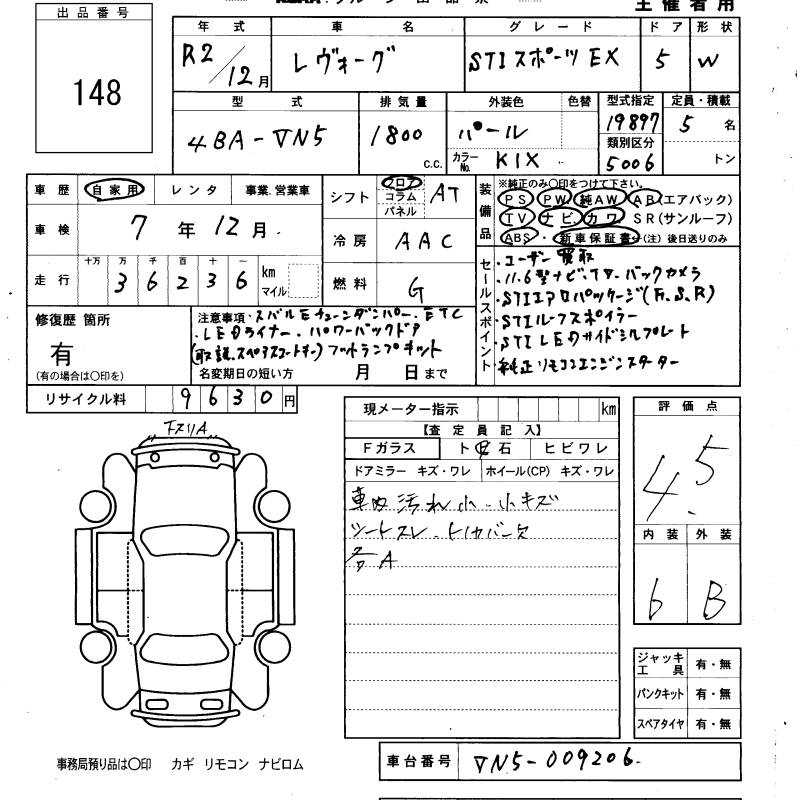 出品番号
148
主催者用
年式 車名 グレード ドア 形状
R2/12月 レヴォーグ STIスポーツEX 5 W
型式 排気量 外装色 色替 型式指定 定員・積載
4BA-VN5 1800 c.c. パール 19897 5名
類別区分
カラーNo. K1X 5006 トン
車歴 自家用 レンタ 事業.営業車
車検 7年12月
走行 十万 万 千 百 十 一
3 6 2 3 6 km マイル
シフト フロア コラム パネル AT
冷房 AAC
燃料 G
装備品
※純正のみ〇印をつけて下さい。
PS PW 純AW AB(エアバッグ)
TV ナビ カワ SR(サンルーフ)
ABS ・ 新車保証書 (注)後日送りのみ
セールスポイント
・ユーザー買取
・11.6型ナビ.TV.バックカメラ
・STIエアロパッケージ(F.S.R)
・STIルーフスポイラー
・STI LEDサイドシルプレート
・純正リモコンエンジンスターター
修復歴 箇所
有
(有の場合は〇印を)
注意事項・スバルEチューンダンパー.ETC
・LEDライナー.パワーバックドア
(取説.スペアスマートキー)フットランプキット
名変期日の短い方 月 日まで
リサイクル料 9630円
現メーター指示 km
【査定員記入】
Fガラス ト飛石 ヒビワレ
ドアミラー キズ・ワレ ホイール(CP) キズ・ワレ
車内汚れ小.小キズ
シートスレ.
多A
評価点
4.5
内装 外装
6 B
ジャッキ工具 有・無
パンクキット 有・無
スペアタイヤ 有・無
事務局預り品は〇印 カギ リモコン ナビロム
車台番号 VN5-009206.